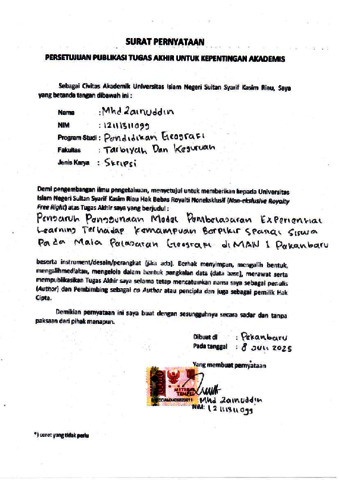 SURAT PERNYATAAN
PERSETUJUAN PUBLIKASI TUGAS AKHIR UNTUK KEPENTINGAN AKADEMIS
Sebagai Civitas Akademik Universitas Islam Negeri Sultan Syarif Kasim Riau, Saya
yang bertanda tangan dibawah ini :
Nama : Mhd Zainuddin
NIM : 12111311099
Program Studi : Pendidikan Geografi
Fakultas : Tarbiyah Dan Keguruan
Jenis Karya : Skripsi
Demi pengembangan ilmu pengetahuan, menyetujui untuk memberikan kepada Universitas
Islam Negeri Sultan Syarif Kasim Riau Hak Bebas Royalti Noneksklusif (Non-eksklusive Royalty
Free Right) atas Tugas Akhir saya yang berjudul :
Pengaruh Penggunaan Model Pembelajaran Experiential
Learning Terhadap Kemampuan Berpikir Spasial Siswa
Pada Mata Pelajaran Geografi di MAN 1 Pekanbaru
beserta instrument/desain/perangkat (jika ada). Berhak menyimpan, mengalih bentuk,
mengalihmediakan, mengelola dalam bentuk pangkalan data (data base), merawat serta
mempublikasikan Tugas Akhir saya selama tetap mencantumkan nama saya sebagai penulis
(Author) dan Pembimbing sebagai co Author atau pencipta dan juga sebagai pemilik Hak
Cipta.
Demikian pernyataan ini saya buat dengan sesungguhnya secara sadar dan tanpa
paksaan dari pihak manapun.
Dibuat di : Pekanbaru
Pada tanggal : 8 Juli 2025
Yang membuat pernyataan
METERAI
TEMPEL
Mhd Zainuddin
NIM: 12111311099
*) coret yang tidak perlu